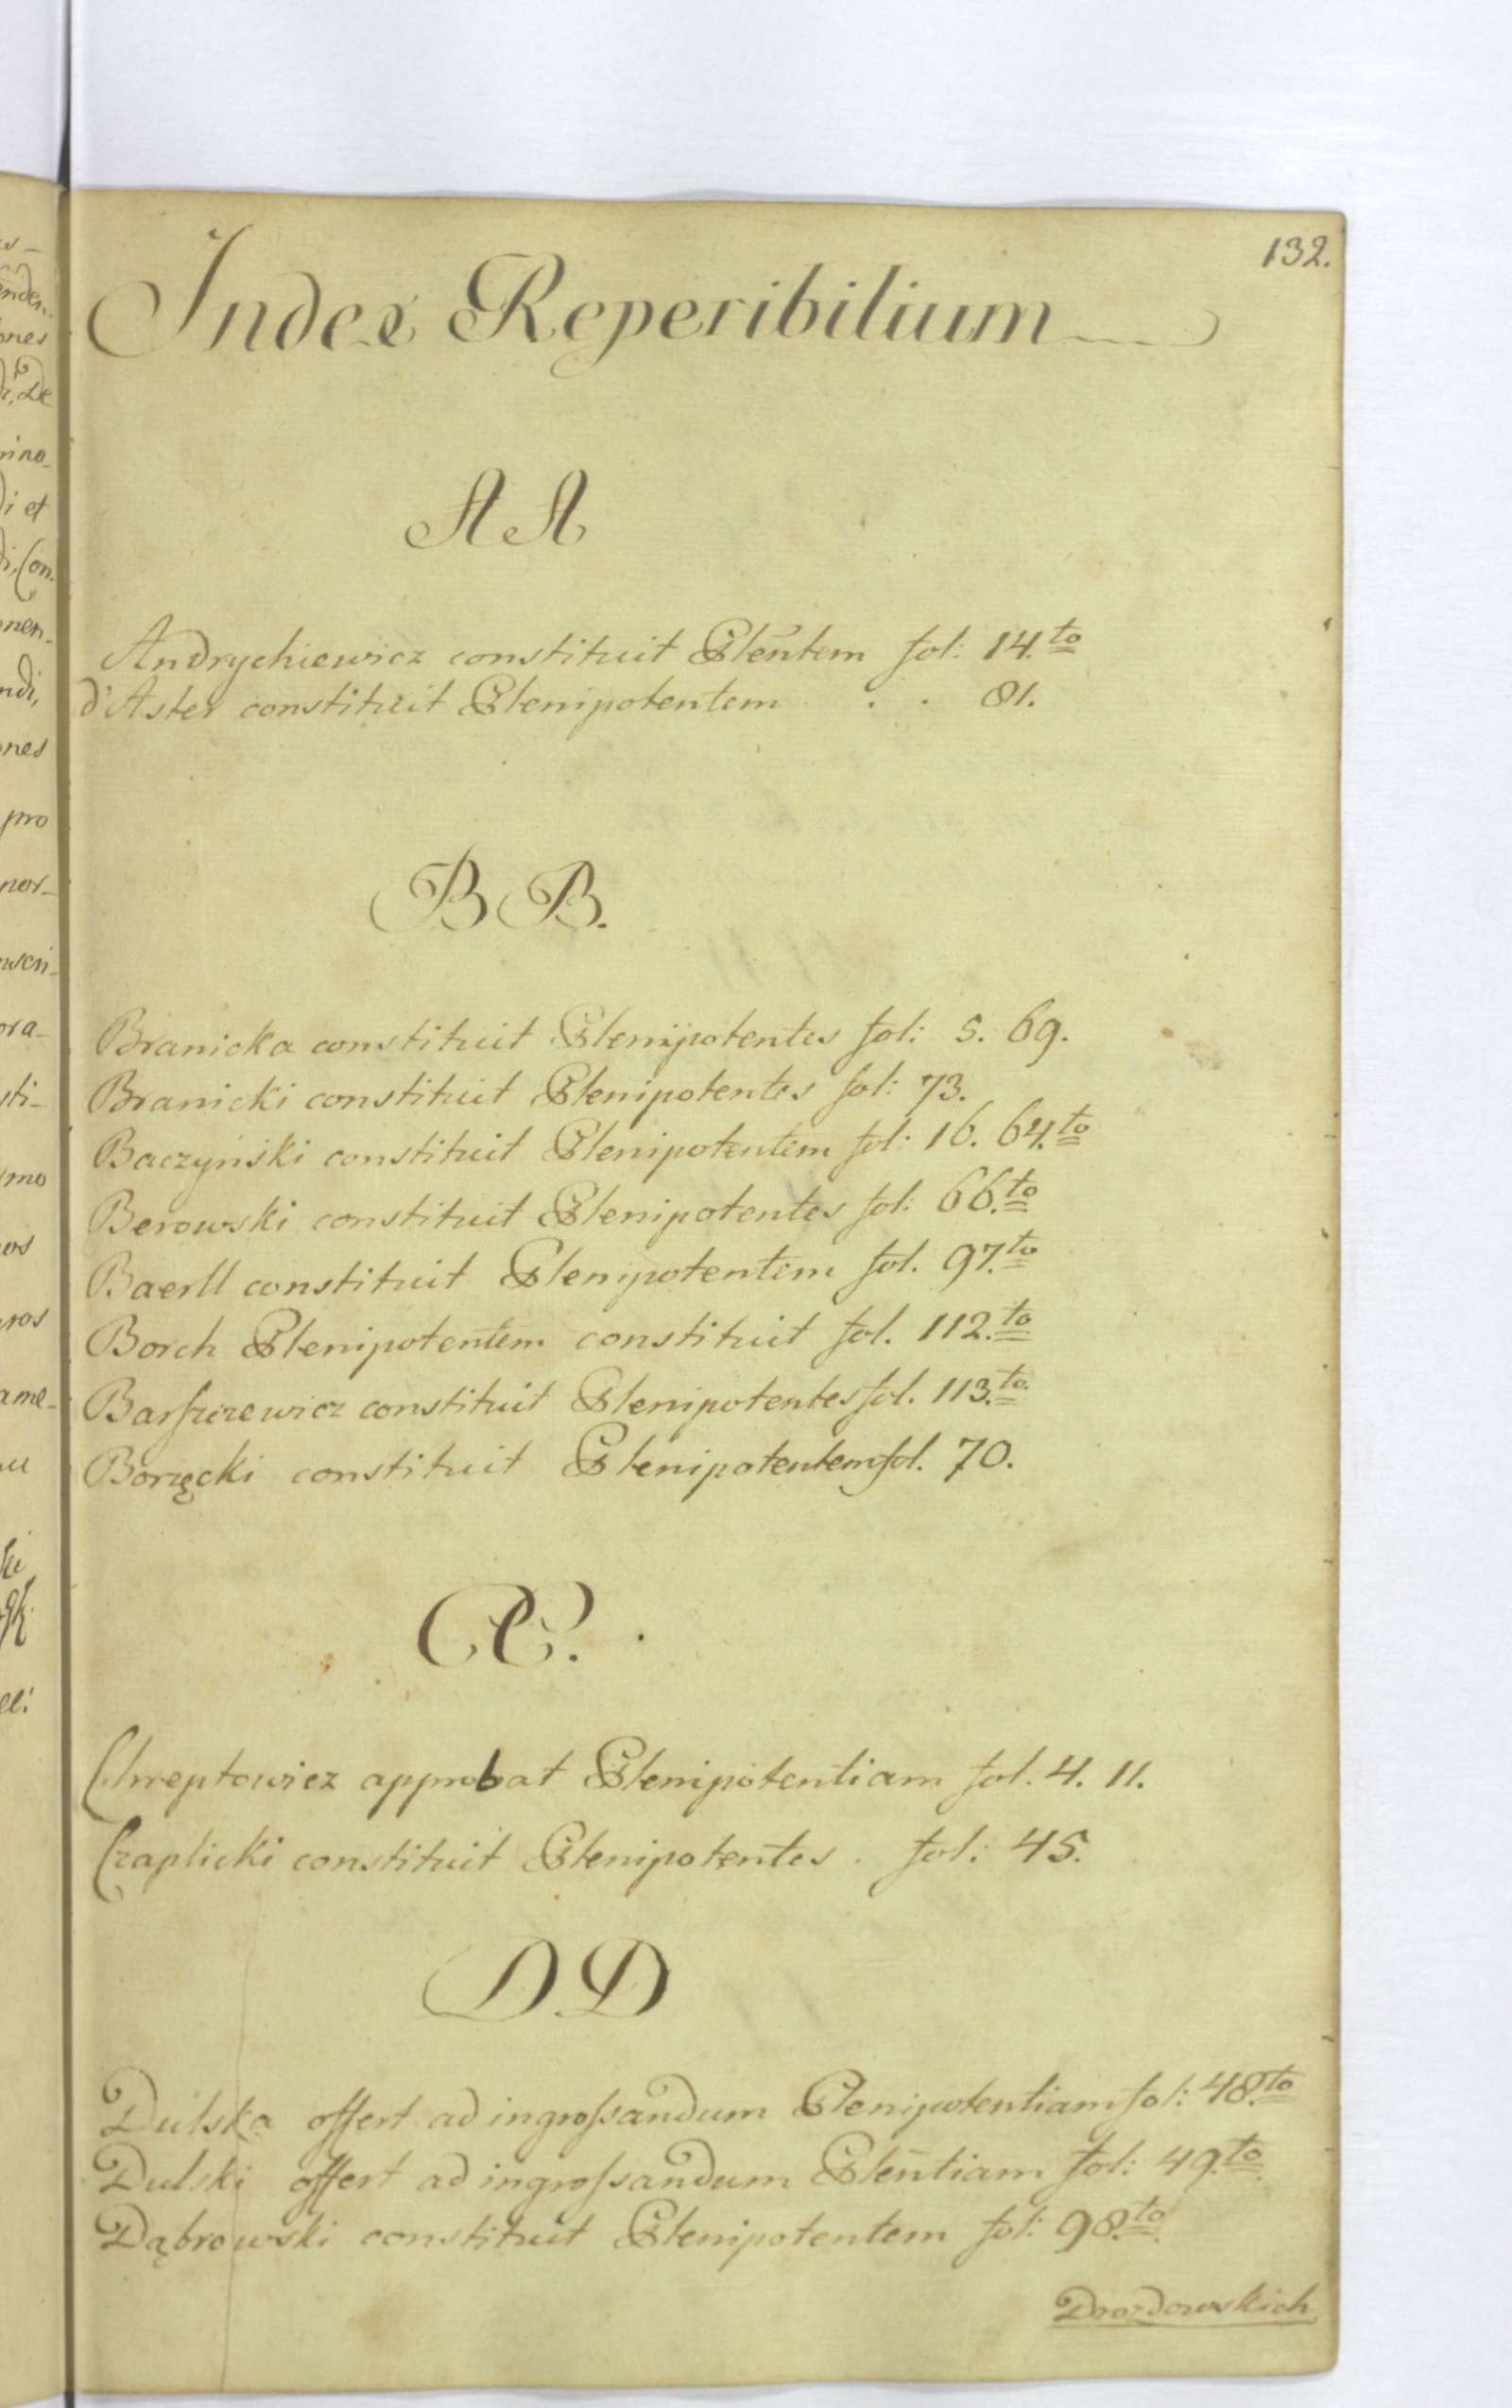 132.
Index Reperibilium
AA
Andrychiewicz constituit Pleñtem fol: 14.to
d'Aster constituit Plenipotentem . . 81.
BB.
Branicka constituit Plenipotentes fol: 5. 69.
Branicki constituit Plenipotentes fol: 73.
Baczyński constituit Plenipotentem fol: 16. 64.to
Berowski constituit Plenipotentes fol: 66.to
Baerll constituit Plenipotentem fol. 97.to
Borch Plenipotentem constituit fol. 112.to
Barſzczewicz constituit Plenipotentes fol. 113.to
Borzęcki constituit Plenipotentem fol. 70.
CC.
Chreptowicz approbat Plenipotentiam fol. 4. 11.
Czaplicki constituit Plenipotentes . fol: 45.
DD
Dulska offert ad ingroſsandum Plenipotentiam fol: 48.to
Dulski offert ad ingroſsandum Pleñtiam fol: 49.to
Dąbrowski constituit Plenipotentem fol: 98.to
Drozdowskich